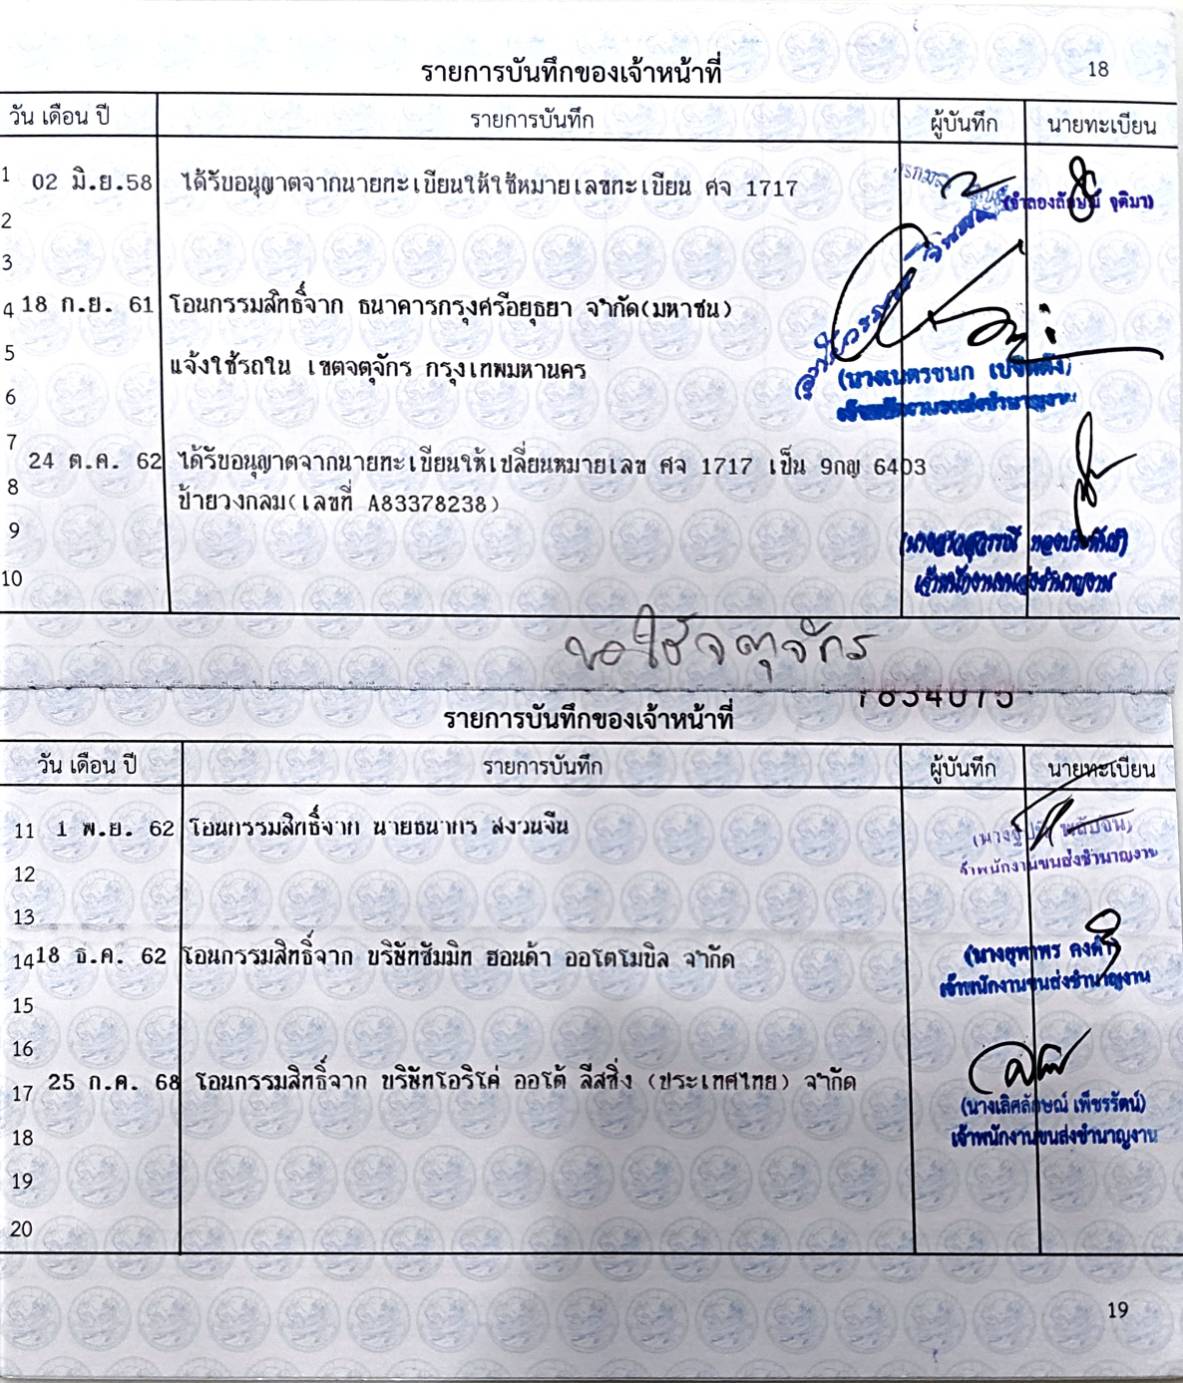 รายการบันทึกของเจ้าหน้าที่ 18
วัน เดือน ปี รายการบันทึก ผู้บันทึก นายทะเบียน
1 02 มิ.ย.58 ได้รับอนุญาตจากนายทะเบียนให้ใช้หมายเลขทะเบียน ศจ 1717
2
3
4 18 ก.ย. 61 โอนกรรมสิทธิ์จาก ธนาคารกรุงศรีอยุธยา จำกัด(มหาชน)
5 แจ้งใช้รถใน เขตจตุจักร กรุงเทพมหานคร
6
7 24 ต.ค. 62 ได้รับอนุญาตจากนายทะเบียนให้เปลี่ยนหมายเลข ศจ 1717 เป็น 9กญ 6403
8 ป้ายวงกลม(เลขที่ A83378238)
9
10
ขอใช้จตุจักร
รายการบันทึกของเจ้าหน้าที่
วัน เดือน ปี รายการบันทึก ผู้บันทึก นายทะเบียน
11 1 พ.ย. 62 โอนกรรมสิทธิ์จาก นายธนากร สงวนจีน
12 เจ้าพนักงานขนส่งชำนาญงาน
13
14 18 ธ.ค. 62 โอนกรรมสิทธิ์จาก บริษัทซัมมิท ฮอนด้า ออโตโมบิล จำกัด
เจ้าพนักงานขนส่งชำนาญงาน
15
16
17 25 ก.ค. 68 โอนกรรมสิทธิ์จาก บริษัทโอริโค่ ออโต้ ลีสซิ่ง (ประเทศไทย) จำกัด
(นางเลิศลักษณ์ เพ็ชรรัตน์)
18 เจ้าพนักงานขนส่งชำนาญงาน
19
20
19